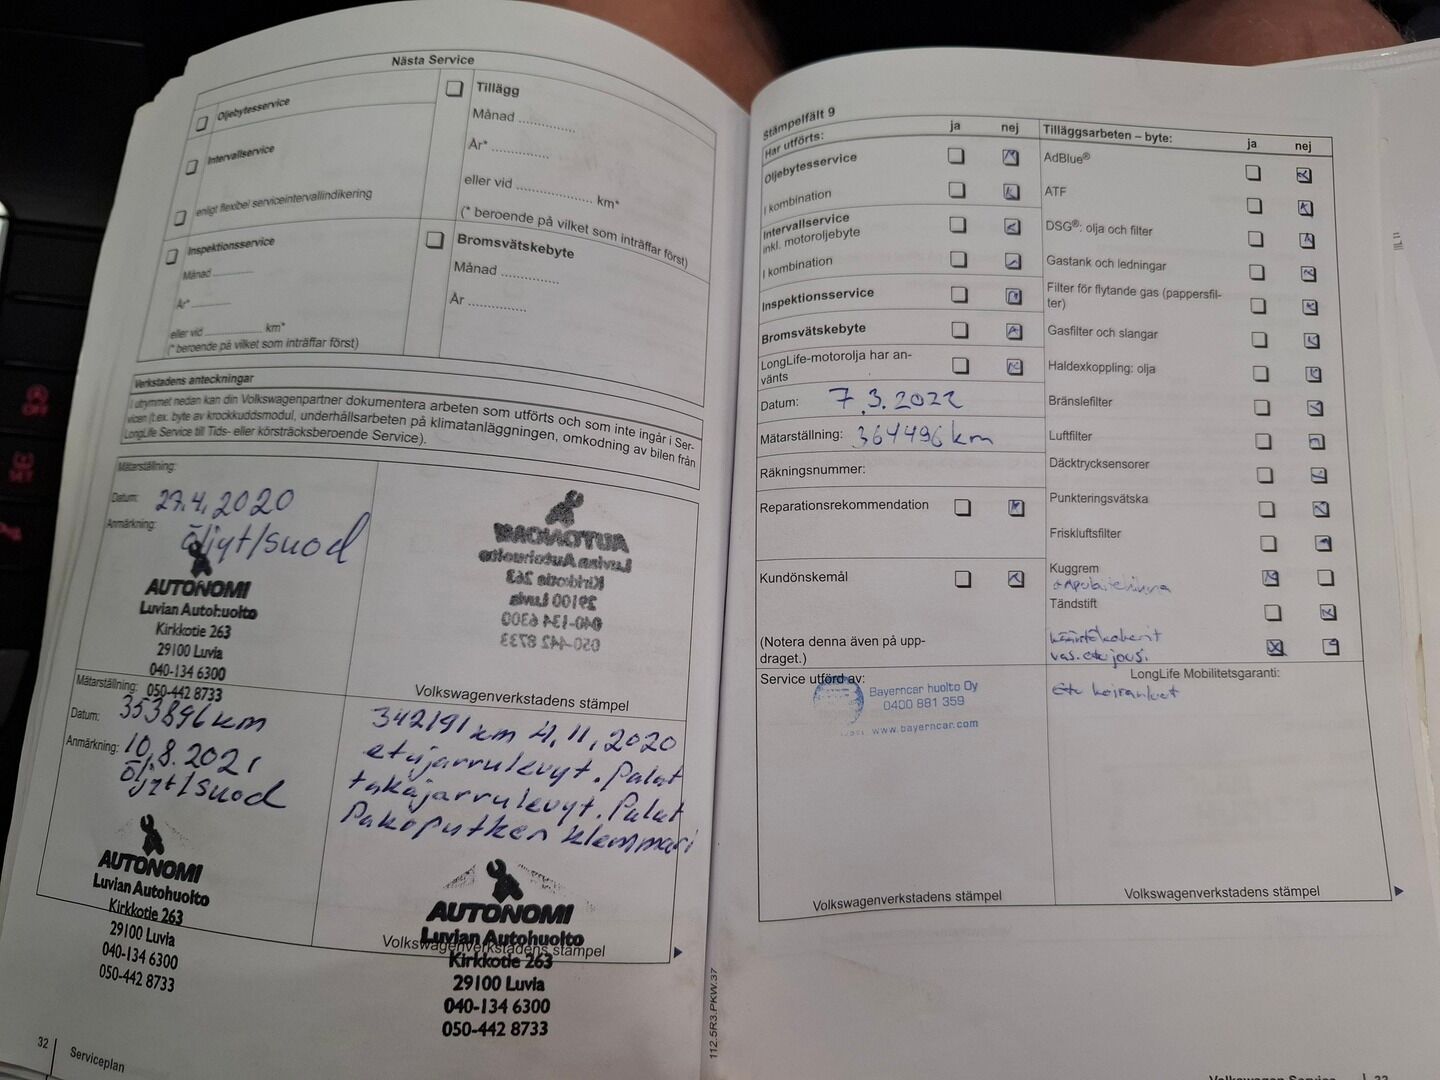 Nästa Service
Oljebytesservice
Intervallservice
enligt flexibel serviceintervallindikering
Inspektionsservice
Månad ............
År* ............
eller vid .................. km*
(* beroende på vilket som inträffar först)
Tillägg
Månad ..............
År* ..............
eller vid .................. km*
(* beroende på vilket som inträffar först)
Bromsvätskebyte
Månad ..............
År ..............
Verkstadens anteckningar
I utrymmet nedan kan din Volkswagenpartner dokumentera arbeten som utförts och som inte ingår i Ser-
vicen (t.ex. byte av krockkuddsmodul, underhållsarbeten på klimatanläggningen, omkodning av bilen från
LongLife Service till Tids- eller körsträcksberoende Service).
Mätarställning:
Datum: 27.4.2020
Anmärkning: öljyt/suod
AUTONOMI
Luvian Autohuolto
Kirkkotie 263
29100 Luvia
040-134 6300
050-442 8733
AUTONOMI
Luvian Autohuolto
Kirkkotie 263
29100 Luvia
040-134 6300
050-442 8733
Volkswagenverkstadens stämpel
Mätarställning: 353896km
Datum: 10.8.2021
Anmärkning: öljyt/suod
AUTONOMI
Luvian Autohuolto
Kirkkotie 263
29100 Luvia
040-134 6300
050-442 8733
342191km 4.11.2020
etujarrulevyt. Palat
takajarrulevyt. Palat
Pakoputken klemmari
AUTONOMI
Luvian Autohuolto
Volkswagenverkstadens stämpel
Kirkkotie 263
29100 Luvia
040-134 6300
050-442 8733
32
Serviceplan
112.5R3.PKW.37
Stämpelfält 9
Har utförts: ja nej
Oljebytesservice
I kombination
Intervallservice
inkl. motoroljebyte
I kombination
Inspektionsservice
Bromsvätskebyte
LongLife-motorolja har an-
vänts
Datum: 7.3.2022
Mätarställning: 364496km
Räkningsnummer:
Reparationsrekommendation
Kundönskemål
(Notera denna även på upp-
draget.)
Service utförd av:
Bayerncar huolto Oy
0400 881 359
www.bayerncar.com
Volkswagenverkstadens stämpel
Tilläggsarbeten – byte: ja nej
AdBlue®
ATF
DSG®: olja och filter
Gastank och ledningar
Filter för flytande gas (pappersfil-
ter)
Gasfilter och slangar
Haldexkoppling: olja
Bränslefilter
Luftfilter
Däcktrycksensorer
Punkteringsvätska
Friskluftsfilter
Kuggrem
Tändstift
vas. etujousi
LongLife Mobilitetsgaranti:
Volkswagenverkstadens stämpel
Volkswagen Service
33